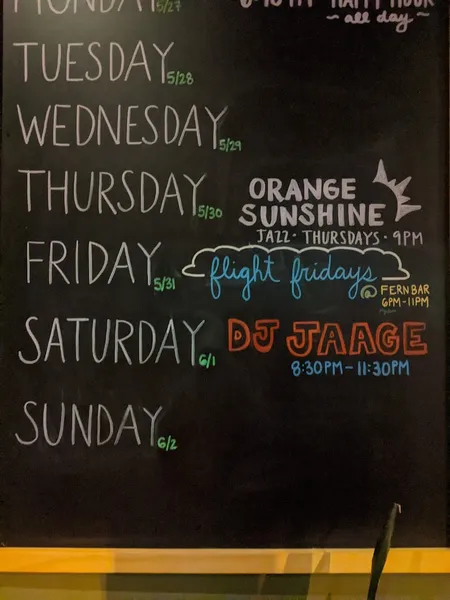 MONDAY 5/27
HAPPY HOUR
~ all day ~
TUESDAY 5/28
WEDNESDAY 5/29
THURSDAY 5/30
ORANGE
SUNSHINE
JAZZ · THURSDAYS · 9PM
FRIDAY 5/31
flight fridays
@ FERN BAR
6PM-11PM
SATURDAY 6/1
DJ JAAGE
8:30PM - 11:30PM
SUNDAY 6/2